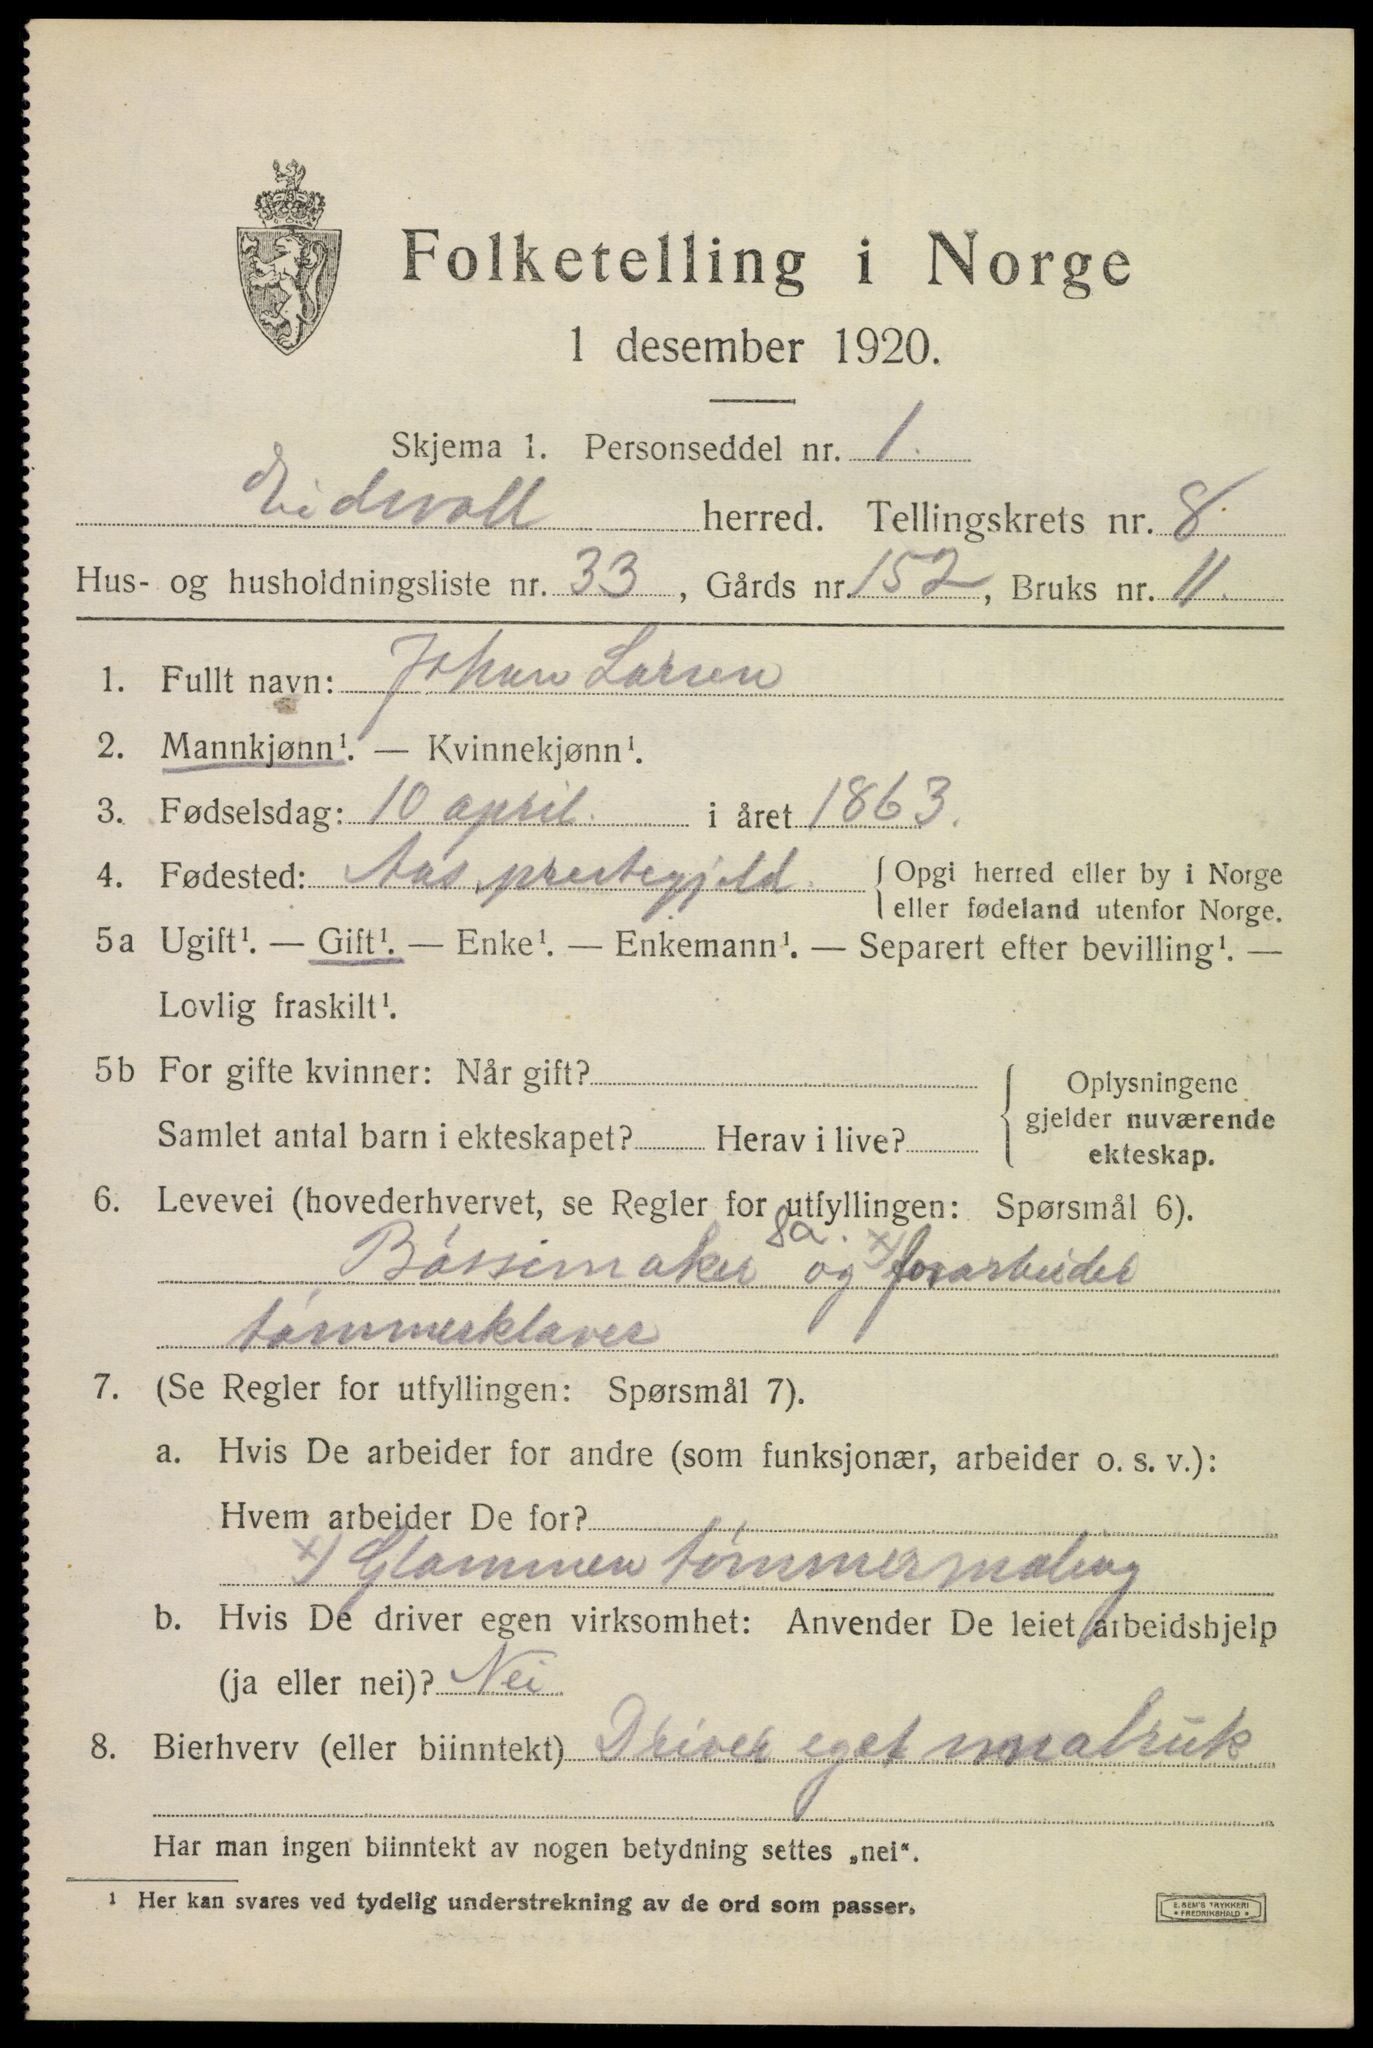 Folketelling i Norge
1 desember 1920.
Skjema 1. Personseddel nr. 1.
Eidsvoll herred. Tellingskrets nr. 8
Hus- og husholdningsliste nr. 33, Gårds nr. 152, Bruks nr. 11.
1. Fullt navn: Johan Larsen
2. Mannkjønn¹. — Kvinnekjønn¹.
3. Fødselsdag: 10 april. i året 1863.
4. Fødested: Aas prestegjeld. Opgi herred eller by i Norge
eller fødeland utenfor Norge.
5a Ugift¹. — Gift¹. — Enke¹. — Enkemann¹. — Separert efter bevilling¹. —
Lovlig fraskilt¹.
5b For gifte kvinner: Når gift?
Samlet antal barn i ekteskapet? Herav i live?
Oplysningene
gjelder nuværende
ekteskap.
6. Levevei (hovederhvervet, se Regler for utfyllingen: Spørsmål 6).
8a.
Bøssemaker og x) forarbeider
tømmerklaver
7. (Se Regler for utfyllingen: Spørsmål 7).
a. Hvis De arbeider for andre (som funksjonær, arbeider o. s. v.):
Hvem arbeider De for?
x) Glommen tømmermåling
b. Hvis De driver egen virksomhet: Anvender De leiet arbeidshjelp
(ja eller nei)? Nei
8. Bierhverv (eller biinntekt) Driver eget småbruk
Har man ingen biinntekt av nogen betydning settes „nei“.
¹ Her kan svares ved tydelig understrekning av de ord som passer.
E. SEM'S TRYKKERI
* FREDRIKSHALD *